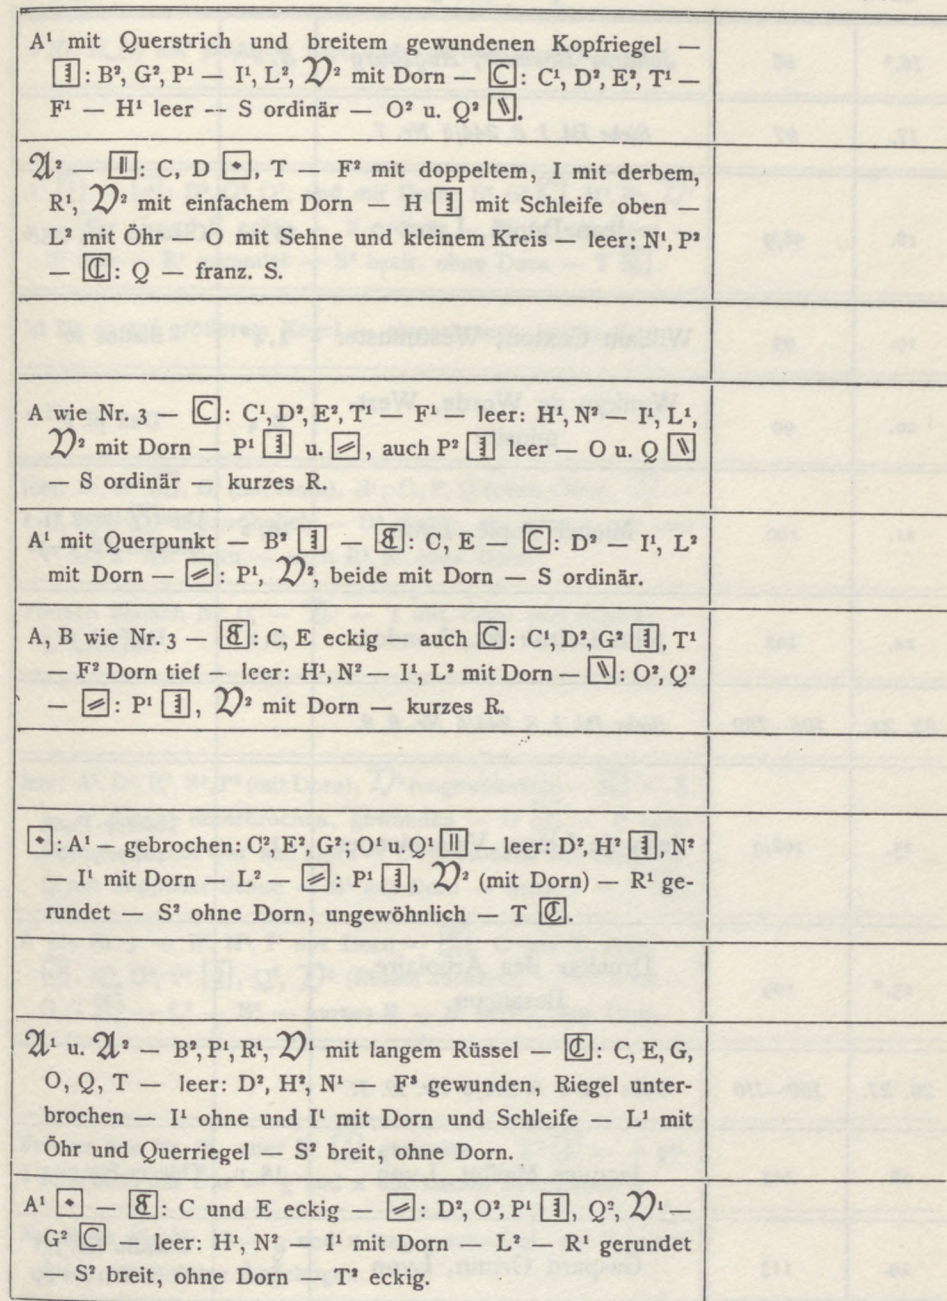 A¹ mit Querstrich und breitem gewundenen Kopfriegel —
: B², G², P¹ — I¹, L², 𝔇² mit Dorn — C: C¹, D², E², T¹ —
F¹ — H¹ leer — S ordinär — O² u. Q² .
𝔄² — : C, D , T — F² mit doppeltem, I mit derbem,
R¹, 𝔇² mit einfachem Dorn — H mit Schleife oben —
L² mit Öhr — O mit Sehne und kleinem Kreis — leer: N¹, P²
— ℭ: Q — franz. S.
A wie Nr. 3 — C: C¹, D², E², T¹ — F¹ — leer: H¹, N² — I¹, L¹,
𝔇² mit Dorn — P¹ u. , auch P² leer — O u. Q
— S ordinär — kurzes R.
A¹ mit Querpunkt — B² — : C, E — C: D² — I¹, L²
mit Dorn — : P¹, 𝔇², beide mit Dorn — S ordinär.
A, B wie Nr. 3 — : C, E eckig — auch C: C¹, D², G² , T¹
— F² Dorn tief — leer: H¹, N² — I¹, L² mit Dorn — : O², Q²
— : P¹ , 𝔇² mit Dorn — kurzes R.
: A¹ — gebrochen: C², E², G²; O¹ u. Q¹ — leer: D², H² , N²
— I¹ mit Dorn — L² — : P¹ , 𝔇² (mit Dorn) — R¹ ge-
rundet — S² ohne Dorn, ungewöhnlich — T ℭ.
𝔄¹ u. 𝔄² — B², P¹, R¹, 𝔇¹ mit langem Rüssel — ℭ: C, E, G,
O, Q, T — leer: D², H², N¹ — F³ gewunden, Riegel unter-
brochen — I¹ ohne und I¹ mit Dorn und Schleife — L¹ mit
Öhr und Querriegel — S² breit, ohne Dorn.
A¹ — : C und E eckig — : D², O², P¹ , Q², 𝔇¹ —
G² C — leer: H¹, N² — I¹ mit Dorn — L² — R¹ gerundet
— S² breit, ohne Dorn — T² eckig.